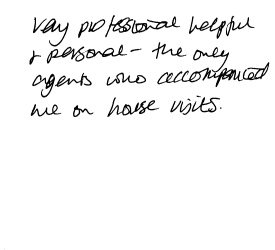 Very professional helpful
& personal - the only
agents who accompanied
me on house visits.